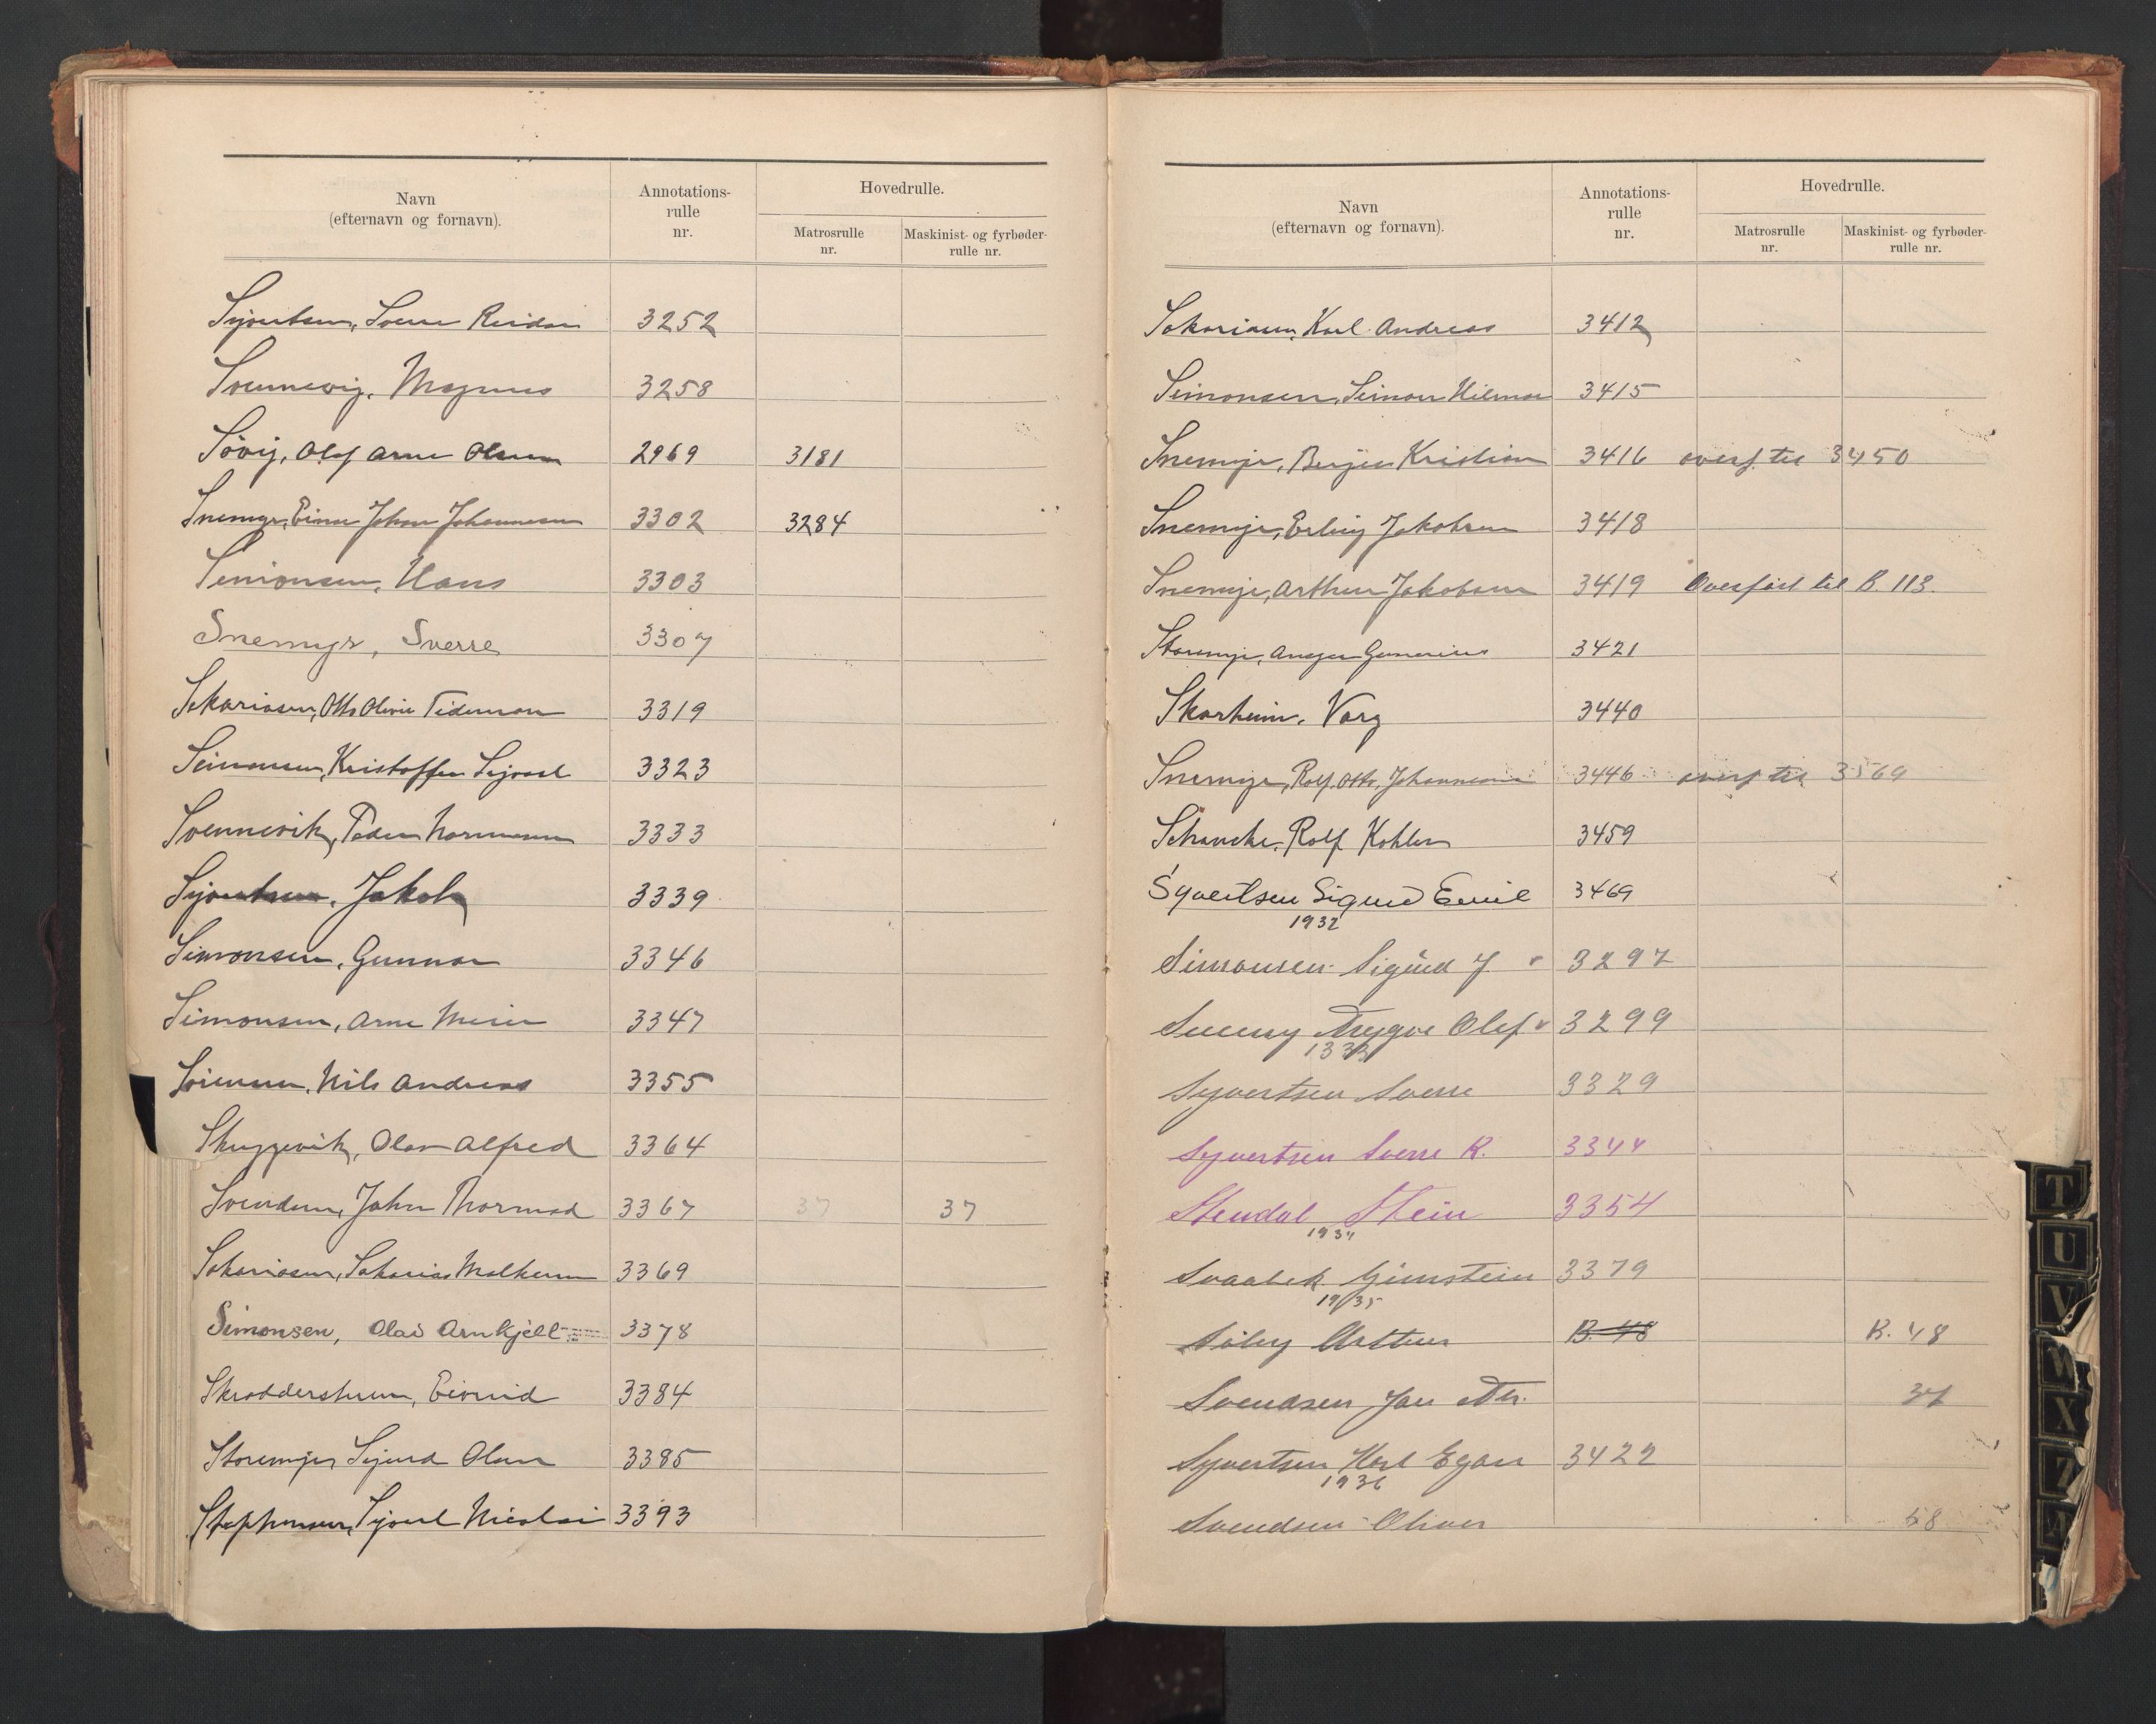 Navn
(efternavn og fornavn).
Annotations-
rulle
nr.
Hovedrulle.
Matrosrulle
nr.
Maskinist- og fyrbøder-
rulle nr.
Syvertsen, Sverre Reidar 3252
Svennevig, Magnus 3258
Søvig, Olaf Arne Olsen 2969 3181
Snemyr, Einar Johan Johannesen 3302 3284
Simonsen, Hans 3303
Snemyr, Sverre 3307
Sakariasen, Otto Oliver Tideman 3319
Simonsen, Kristoffer Sigvart 3323
Svennevik, Peder Normann 3333
Syvertsen, Jakob 3339
Simonsen, Gunnar 3346
Simonsen, Arne Meier 3347
Sørensen, Nils Andreas 3355
Skuggevik, Olav Alfred 3364
Svendsen, John Thormod 3367 37 37
Sakariasen, Sakarias 3369
Simonsen, Olav Arnkjell 3378
Eivind 3384
Storemyr, Sigurd Olav 3385
Sigvart Nicolai 3393
Navn
(efternavn og fornavn).
Annotations-
rulle
nr.
Hovedrulle.
Matrosrulle
nr.
Maskinist- og fyrbøder-
rulle nr.
Sakariasen, Karl Andreas 3412
Simonsen, Simon Hilmar 3415
Snemyr, Kristian 3416 overf. til 3450
Snemyr, Erling Jakobsen 3418
Snemyr, Arthur Jakobsen 3419 Overført til B. 113.
Storemyr, 3421
Skarheim, Varg 3440
Snemyr, Rolf Otto Johannesen 3446 overf. til 3569
Schancke, Rolf Kohler 3459
Syvertsen Sigurd Emil 3469
1932
Simonsen Sigurd J. 3297
Trygve Olaf 3299
1333
Syvertsen Sverre 3329
Syvertsen Sverre R. 3344
Stendal Stein 3354
1934
Svaabek 3379
1935
Søby Arthur B. 48 B. 48
Svendsen Jan Th. 37
Syvertsen Karl Egar 3422
1936
Svendsen Oliver 58
T
U
V
W
X
Z